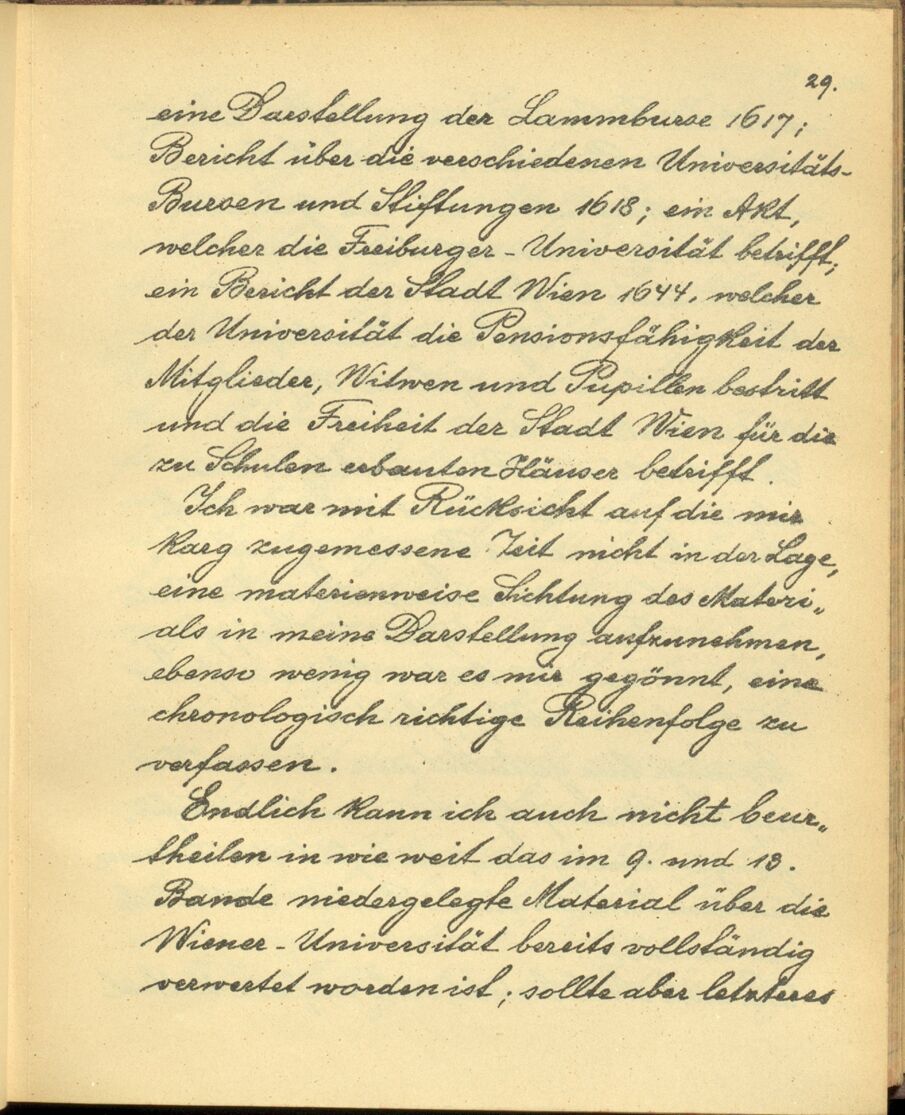 29.
eine Darstellung der Lammburse 1617;
Bericht über die verschiedenen Universitäts-
Bursen und Stiftungen 1618; ein Akt,
welcher die Freiburger-Universität betrifft;
ein Bericht der Stadt Wien 1644, welcher
der Universität die Pensionsfähigkeit der
Mitglieder, Witwen und Pupillen bestritt
und die Freiheit der Stadt Wien für die
zu Schulen erbauten Häuser betrifft.
Ich war mit Rücksicht auf die mir
karg zugemessene Zeit nicht in der Lage,
eine materienweise Sichtung des Materi„
als in meine Darstellung aufzunehmen,
ebenso wenig war es mir gegönnt, eine
chronologisch richtige Reihenfolge zu
verfassen.
Endlich kann ich auch nicht beur„
theilen in wie weit das im 9. und 13.
Bande niedergelegte Material über die
Wiener-Universität bereits vollständig
verwertet worden ist; sollte aber letzteres